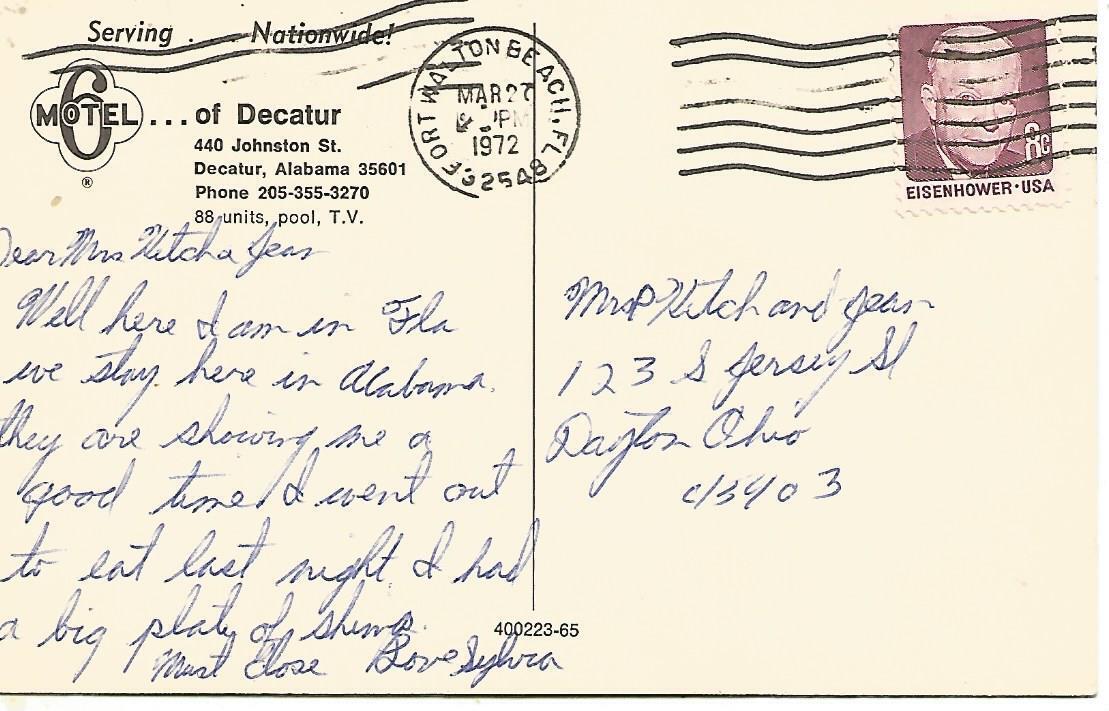 Serving . . . Nationwide!
MOTEL 6 ® ... of Decatur
440 Johnston St.
Decatur, Alabama 35601
Phone 205-355-3270
88 units, pool, T.V.
FORT WALTON BEACH, FL
MAR 27
PM
1972
32548
8c
EISENHOWER·USA
Dear Mrs Kitch & Jean
Well here I am in Fla
we stay here in Alabama.
they are showing me a
good time. I went out
to eat last night I had
a big platy of shimp.
Must Close Love Sylvia
400223-65
Mrs P Kitch and Jean
123 S Jersey St
Dayton Ohio
45403